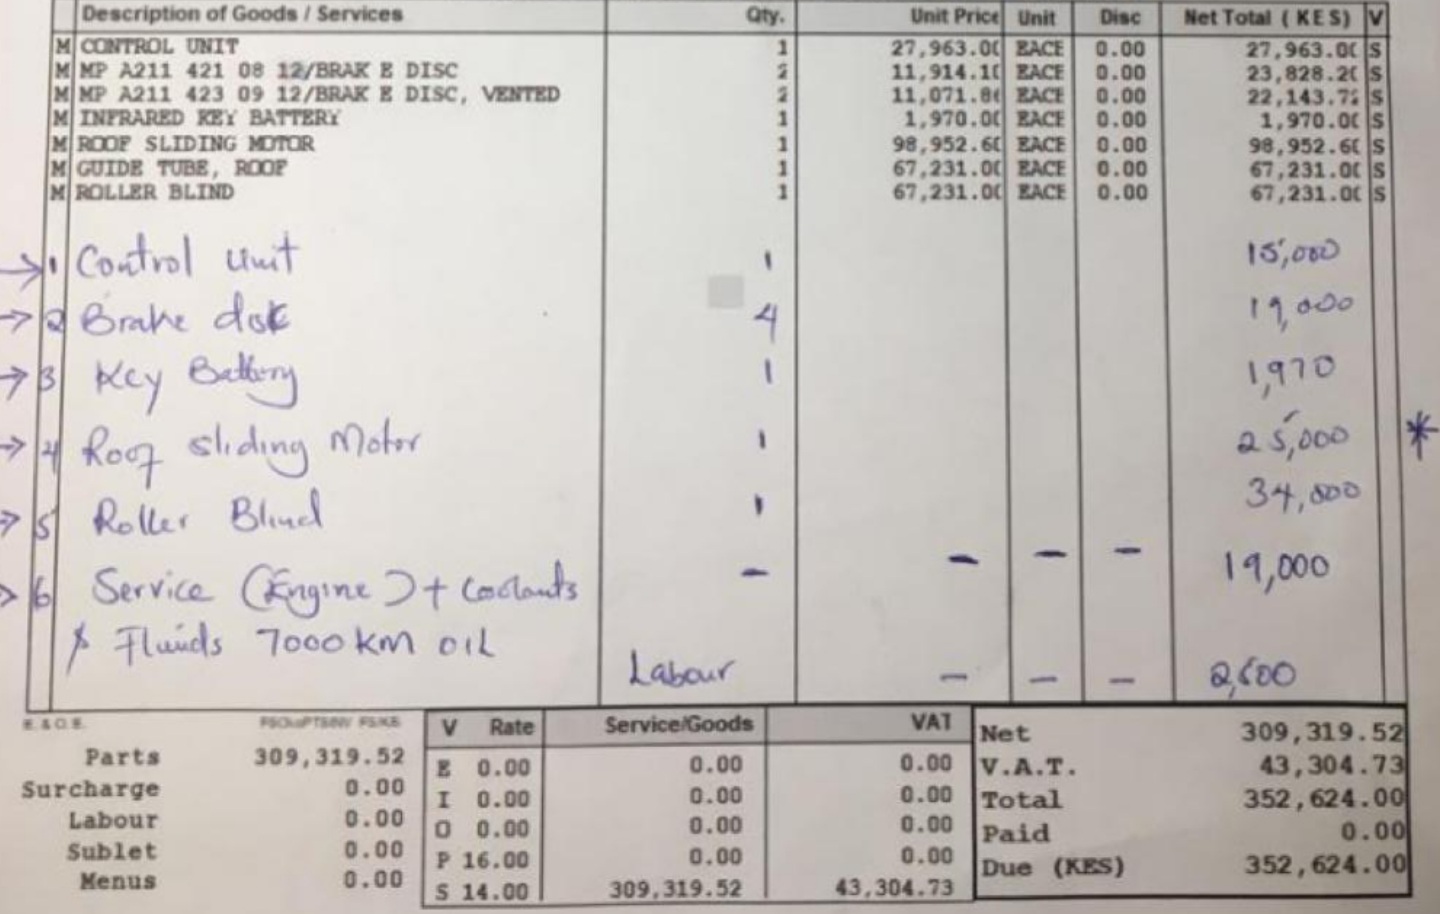 Description of Goods / Services Qty. Unit Price Unit Disc Net Total ( KES) V
M CONTROL UNIT 1 27,963.00 EACE 0.00 27,963.00 S
M MP A211 421 08 12/BRAK E DISC 2 11,914.10 EACE 0.00 23,828.20 S
M MP A211 423 09 12/BRAK E DISC, VENTED 2 11,071.86 EACE 0.00 22,143.72 S
M INFRARED KEY BATTERY 1 1,970.00 EACE 0.00 1,970.00 S
M ROOF SLIDING MOTOR 1 98,952.60 EACE 0.00 98,952.60 S
M GUIDE TUBE, ROOF 1 67,231.00 EACE 0.00 67,231.00 S
M ROLLER BLIND 1 67,231.00 EACE 0.00 67,231.00 S
→ 1 Control Unit 1 15,000
→ 2 Brake disk 4 19,000
→ 3 Key Battery 1 1,970
→ 4 Roof sliding Motor 1 25,000 *
→ 5 Roller Blind 1 34,000
→ 6 Service (Engine) + Coolants - - - - 19,000
& Fluids 7000 KM OIL
Labour - - - 2,600
E. & O. E.
V Rate Service/Goods VAT
Parts 309,319.52
Surcharge 0.00
Labour 0.00
Sublet 0.00
Menus 0.00
E 0.00 0.00 0.00
I 0.00 0.00 0.00
O 0.00 0.00 0.00
P 16.00 0.00 0.00
S 14.00 309,319.52 43,304.73
Net 309,319.52
V.A.T. 43,304.73
Total 352,624.00
Paid 0.00
Due (KES) 352,624.00